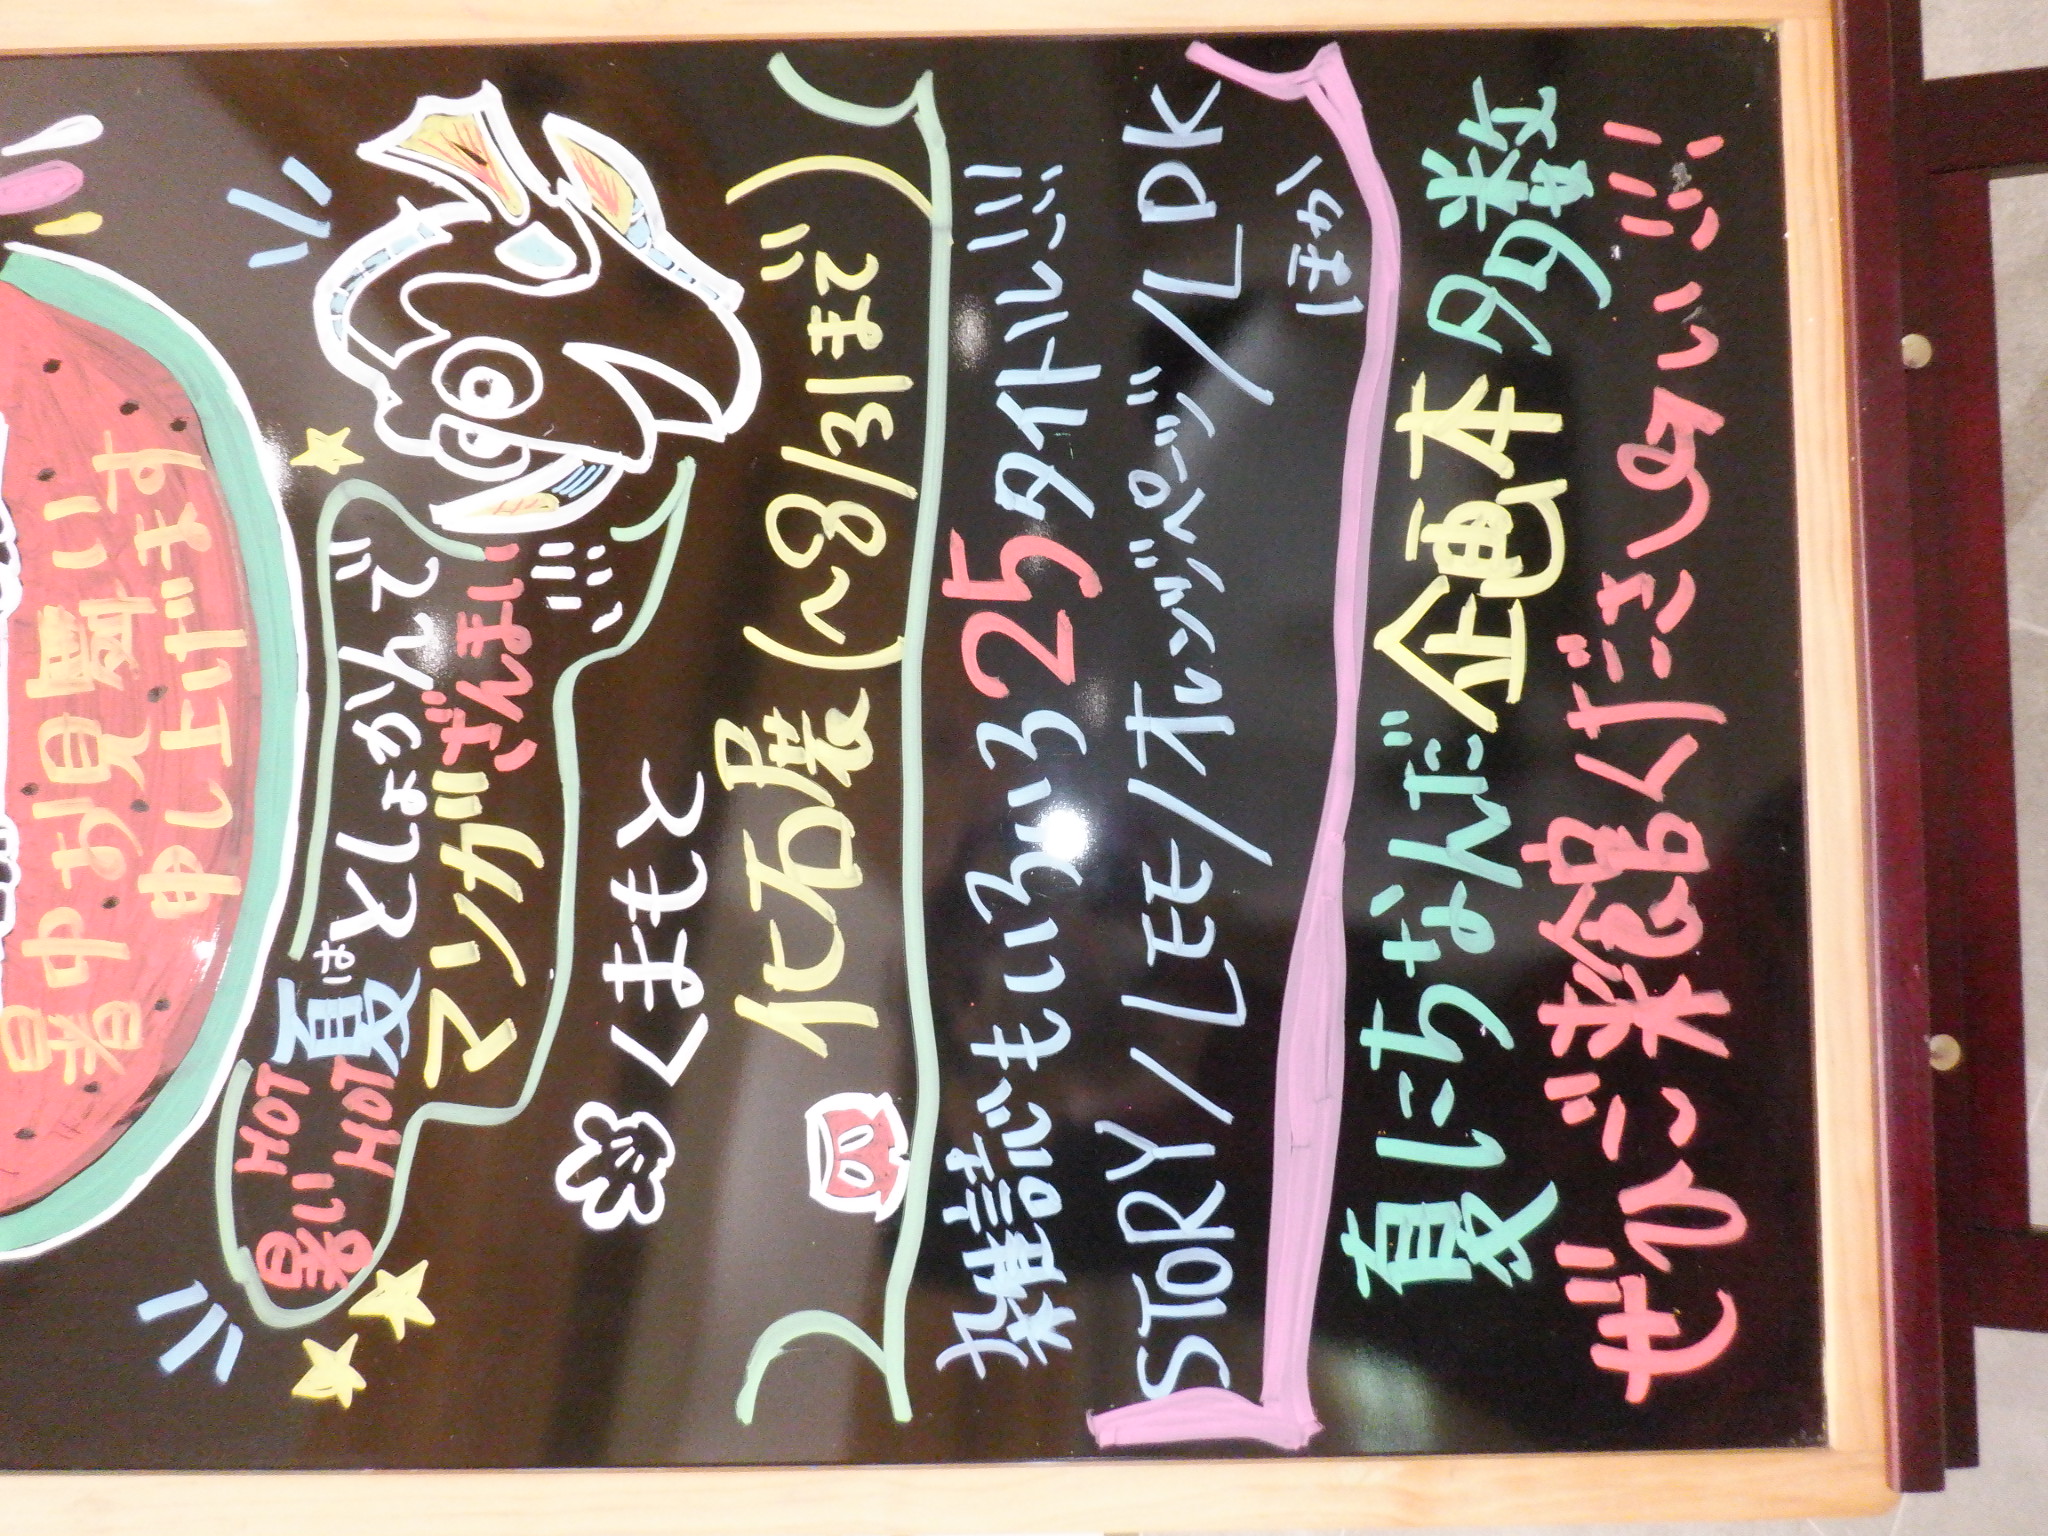 暑中お見舞い
申し上げます
暑い HOT HOT
夏は
としょかんで
マンガざんまい!!!
くまもと
化石展(〜8/31まで)
雑誌もいろいろ25タイトル!!!
STORY/LEE/オレンジページ/LDK
ほか
夏にちなんだ企画本多数
ぜひご来館くださいのい!!!